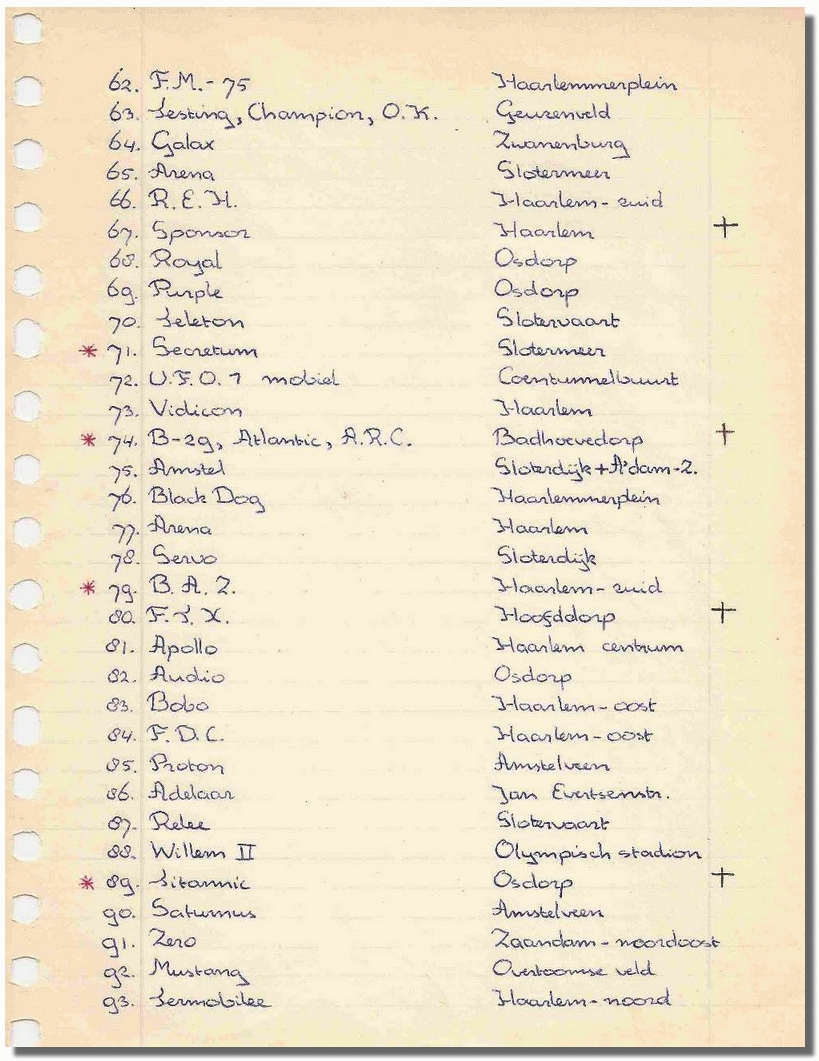 62. F.M.- 75 Haarlemmerplein
63. Testing, Champion, O.K. Geuzenveld
64. Galax Zwanenburg
65. Arena Slotermeer
66. R.E.H. Haarlem-zuid
67. Sponsor Haarlem +
68. Royal Osdorp
69. Purple Osdorp
70. Teleton Slotervaart
* 71. Secretum Slotermeer
72. U.F.O. 1 mobiel Coentunnelbuurt
73. Vidicon Haarlem
* 74. B-29, Atlantic, A.R.C. Badhoevedorp +
75. Amstel Sloterdijk+A'dam-Z.
76. Black Dog Haarlemmerplein
77. Arena Haarlem
78. Servo Sloterdijk
* 79. B. A. Z. Haarlem-zuid
80. F. T. X. Hoofddorp +
81. Apollo Haarlem centrum
82. Audio Osdorp
83. Bobo Haarlem-oost
84. F. D. C. Haarlem-oost
85. Proton Amstelveen
86. Adelaar Jan Evertsenstr.
87. Relee Slotervaart
88. Willem II Olympisch stadion
* 89. Titannic Osdorp +
90. Saturnus Amstelveen
91. Zero Zaandam-noordoost
92. Mustang Overtoomse veld
93. Termobilee Haarlem-noord